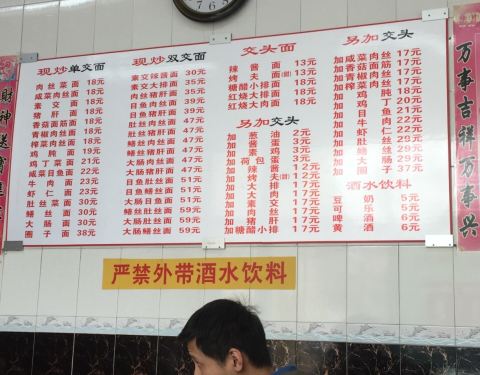 现炒单交面
肉丝菜面 18元
咸菜肉丝面 18元
素交面 18元
猪肝面 18元
香菇面筋面 18元
青椒肉丝面 18元
榨菜肉丝面 18元
鸡肫面 19元
鸡丁菜面 21元
咸菜目鱼面 23元
牛肉面 23元
虾仁面 23元
肚丝面 30元
鳝丝面 30元
大肠面 30元
圈子面 38元
现炒双交面
素交辣酱面 30元
素交大排面 35元
素交猪肝面 35元
目鱼肉丝面 39元
肉丝猪肝面 35元
目鱼猪肝面 39元
虾仁猪肝面 39元
肚丝猪肝面 47元
鳝丝猪肝面 47元
大肠猪肝面 47元
目鱼肚丝面 51元
目鱼鳝丝面 51元
大肠目鱼面 51元
鳝丝肚丝面 59元
大肠肚丝面 59元
大肠鳝丝面 59元
交头面
辣酱面 13元
烤夫面(甜) 13元
糖醋小排面 18元
红烧大排面 18元
红烧大肉面 18元
另加交头
加葱油 2元
加酱蛋 3元
加素鸡 3元
加荷包蛋 3元
加辣酱 12元
加烤夫(甜) 12元
加大排 17元
加大肉 17元
加素交 17元
加猪肝 17元
加糖醋小排 17元
另加交头
加咸菜肉丝 17元
加香菇面筋 17元
加青椒肉丝 17元
加榨菜肉丝 17元
加鸡肫
加鸡丁 20元
加目鱼 22元
加虾仁 22元
加牛肉 22元
加肚丝 29元
加鳝丝 29元
加大肠 29元
加圈子 37元
酒水饮料
豆奶 5元
可乐 5元
啤酒 6元
黄酒 6元
严禁外带酒水饮料
万事吉祥万事兴
财神送